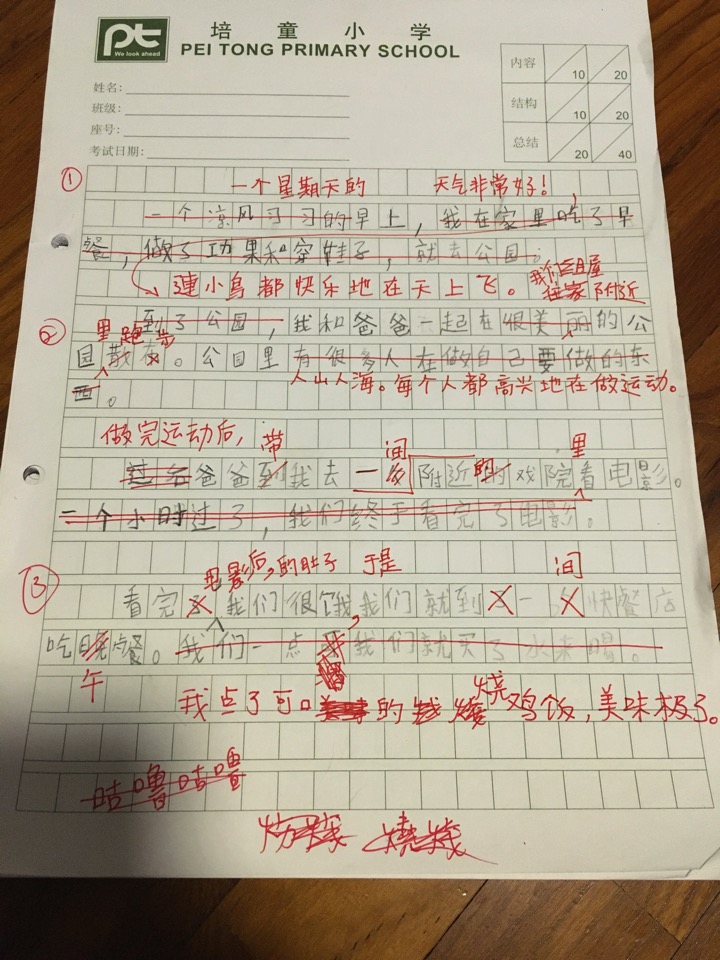 pt
We look ahead
培童小学
PEI TONG PRIMARY SCHOOL
姓名:
班级:
座号:
考试日期:
内容 10 20
结构 10 20
总结 20 40
① 一个星期天的 天气非常好!
一个凉风习习的早上，我在家里吃了早
餐，做了功果和穿鞋子，就去公园。
連小鸟都快乐地在天上飞。我们组屋
在家附近
② 里 跑步
到了公园，我和爸爸一起在很美丽的公
园散夜。公园里有很多人在做自己要做的东
西。
人山人海。每个人都高兴地在做运动。
做完运动后，带 间 里
过后爸爸到我去一多附近的戏院看电影。
一个小时过了，我们终于看完了电影。
③ 电影后，的肚子 于是 间
看完 我们很饿我们就到 一 快餐店
吃晚餐。我们一点 我们就买了水来喝。
午
我点了可口 的 烧鸡饭，美味极了。
咕噜咕噜